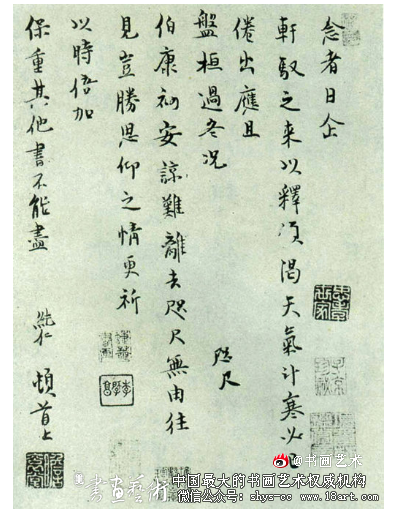 念者日企
軒馭之来以釋傾渴天氣計寒必已
倦出應且
盤桓過冬况
咫尺
伯康初安諒難離去咫尺無由往
見豈勝思仰之情更祈
以時倍加
保重其他書不能盡 純仁 頓首上
@书画艺术
書畫藝術
中国最大的书画艺术权威机构
微信公众号: shys-cc www.18art.com